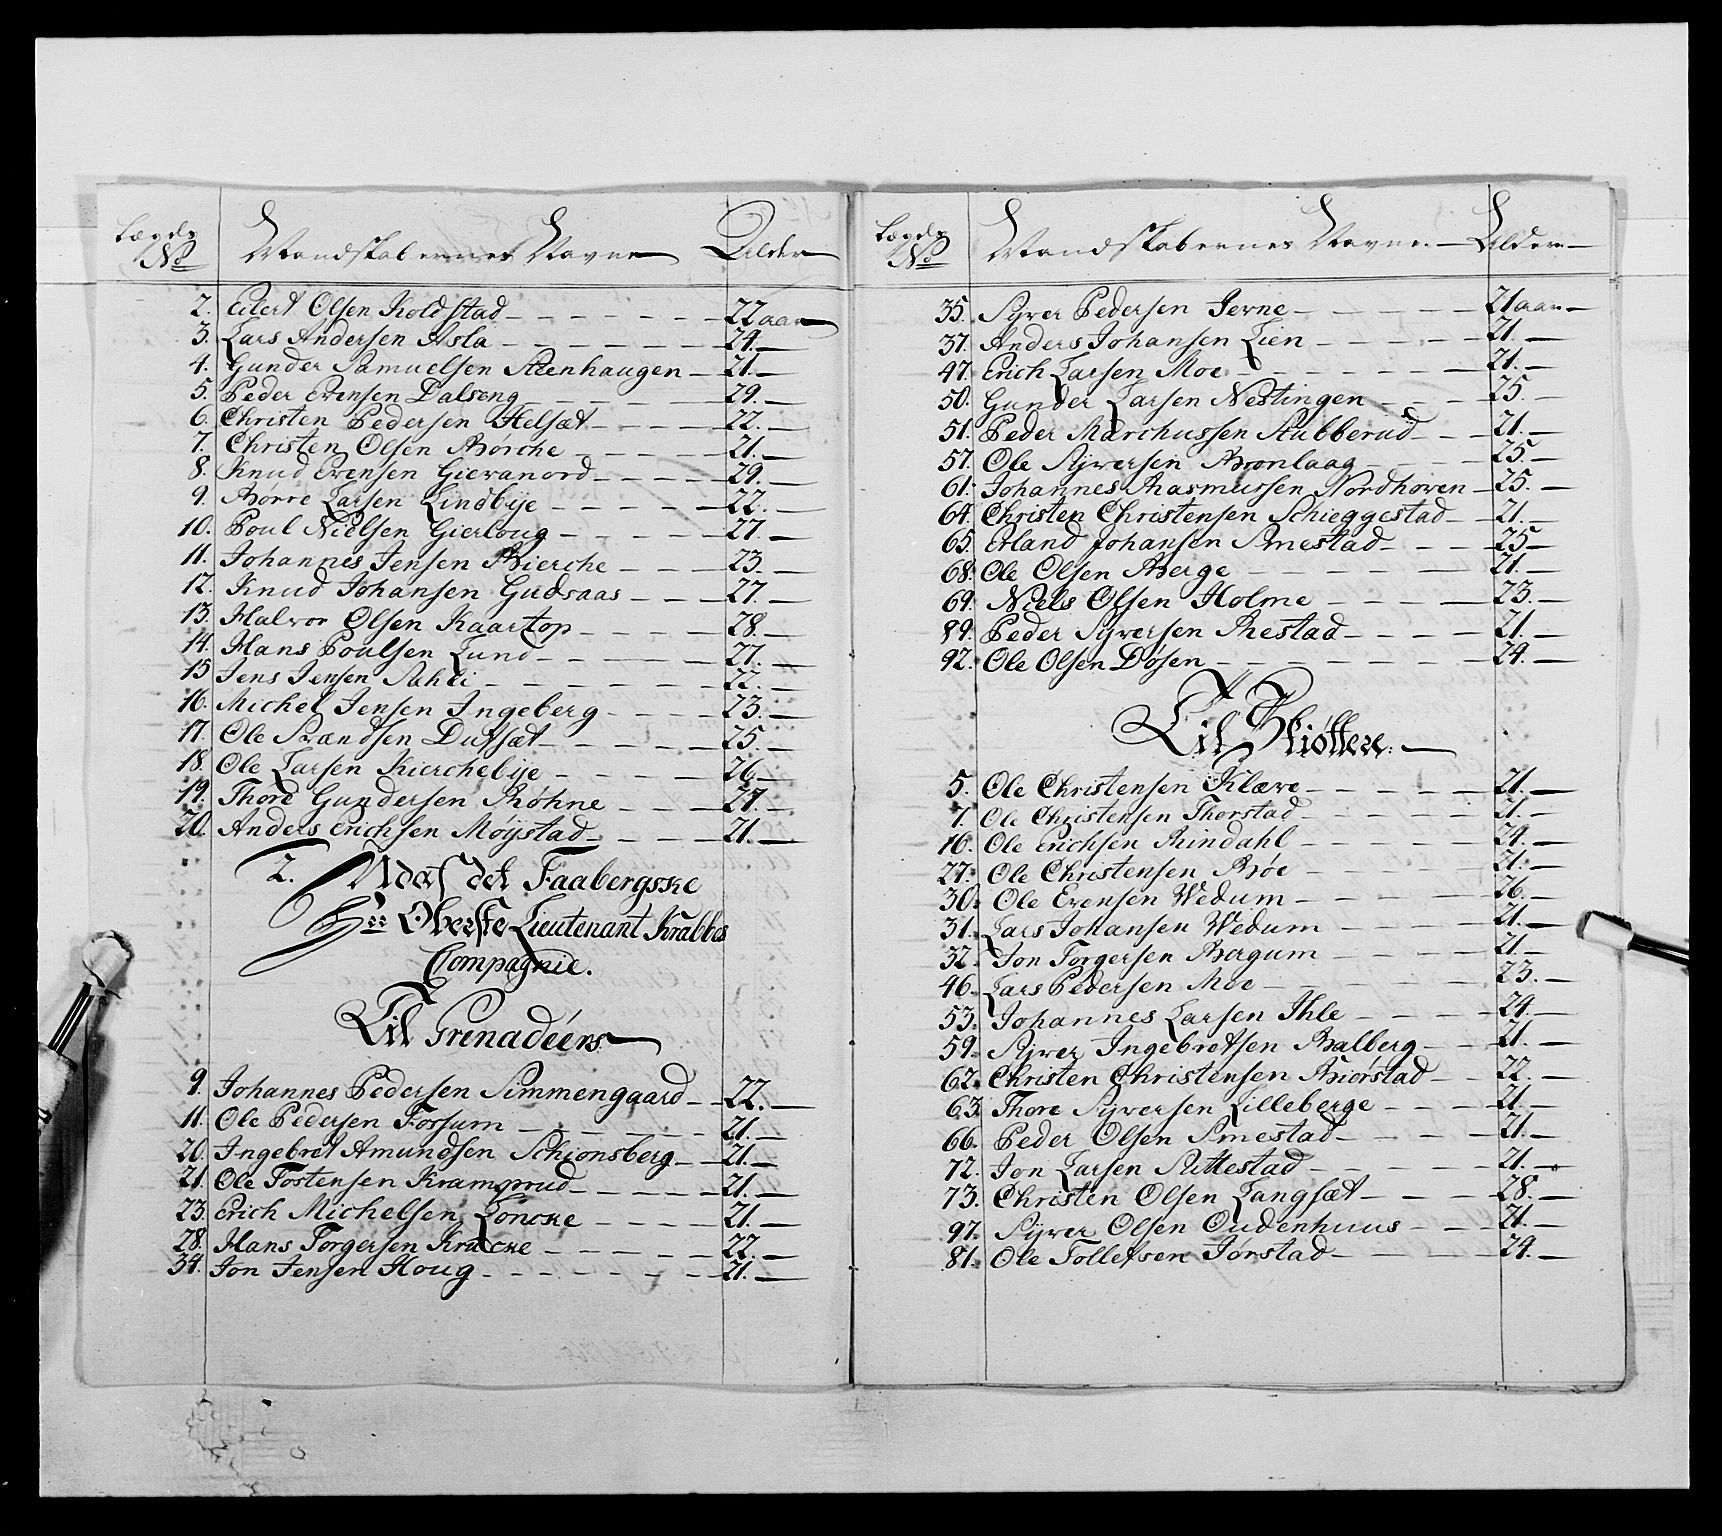 Lægds No Mandskabernes Navne Alder
2. Eilert Olsen Koldstad 22 aar
3. Lars Andersen Asla 24.
4. Gunder Samuelsen Steenhaugen 21.
5. Peder Evensen Dalseng 29.
6. Christen Pedersen Helsæt 22.
7. Christen Olsen Børche 21.
8. Knud Evensen Gievanord 29.
9. Borre Larsen Lindbÿe 22.
10. Poul Nielsen Gierloug 27.
11. Johannes Jensen Bierche 23.
12. Knud Johansen Gudsaas 27.
13. Halvor Olsen Kaartop 28.
14. Hans Poulsen Lund 27.
15 Jens Jensen Sahli 22.
16. Michel Jensen Ingeberg 23.
17. Ole Svendsen Dufsæt 25.
18. Ole Larsen Kierchebÿe 26.
19. Thore Gundersen Bøhne 27.
20. Anders Erichsen Møÿstad 21.
2. Udaf det Faabergske
Hrr Oberste Lieutenant Krabbes
Compagnie.
Til Grenadéers
9. Johannes Pedersen Simmengaard 22.
11. Ole Pedersen Forsum 21.
20. Ingebret Amundsen Schionsberg 21.
21. Ole Tostensen Kramprud 21.
23. Erich Michelsen Loncke 21.
28. Hans Torgersen Krucke 22.
34. Jon Jensen Houg 21.
Lægds No Mandskabernes Navne Alder
35. Syver Pedersen Jevne 21 aar
37. Anders Johansen Lien 21.
47. Erich Larsen Moe 21.
50. Gunder Larsen Nestingen 25.
51. Peder Marchussen Stubberud 21.
57. Ole Syversen Bronlaag 25.
61. Johannes Rasmussen Nordhoven 25.
64. Christen Christensen Schieggestad 21.
65. Erland Johansen Smestad 25
68. Ole Olsen Berge 21.
69. Niels Olsen Holme 23.
89. Peder Syversen Restad 21.
92. Ole Olsen Døsen 24.
Til Skiøttere.
5. Ole Christensen Klæve 21.
7. Ole Christensen Thorstad 21.
16. Ole Erichsen Rindahl 24.
27. Ole Christensen Bøe 21.
30. Ole Evensen Wedum 26.
31. Lars Johansen Wedum 21.
32. Jon Torgersen Bergum 21.
46. Lars Pedersen Moe 23.
53. Johannes Larsen Ihle 24.
59. Syver Ingebretsen Balberg 21.
62. Christen Christensen Kiørstad 22.
63. Thore Syversen Lilleberge 21.
66. Peder Olsen Smestad 21.
72. Jon Larsen Sittestad 21.
73. Christen Olsen Langsæt 28.
97. Syver Olsen Oudenhuus 21.
81. Ole Tollefsen Jørstad 24.